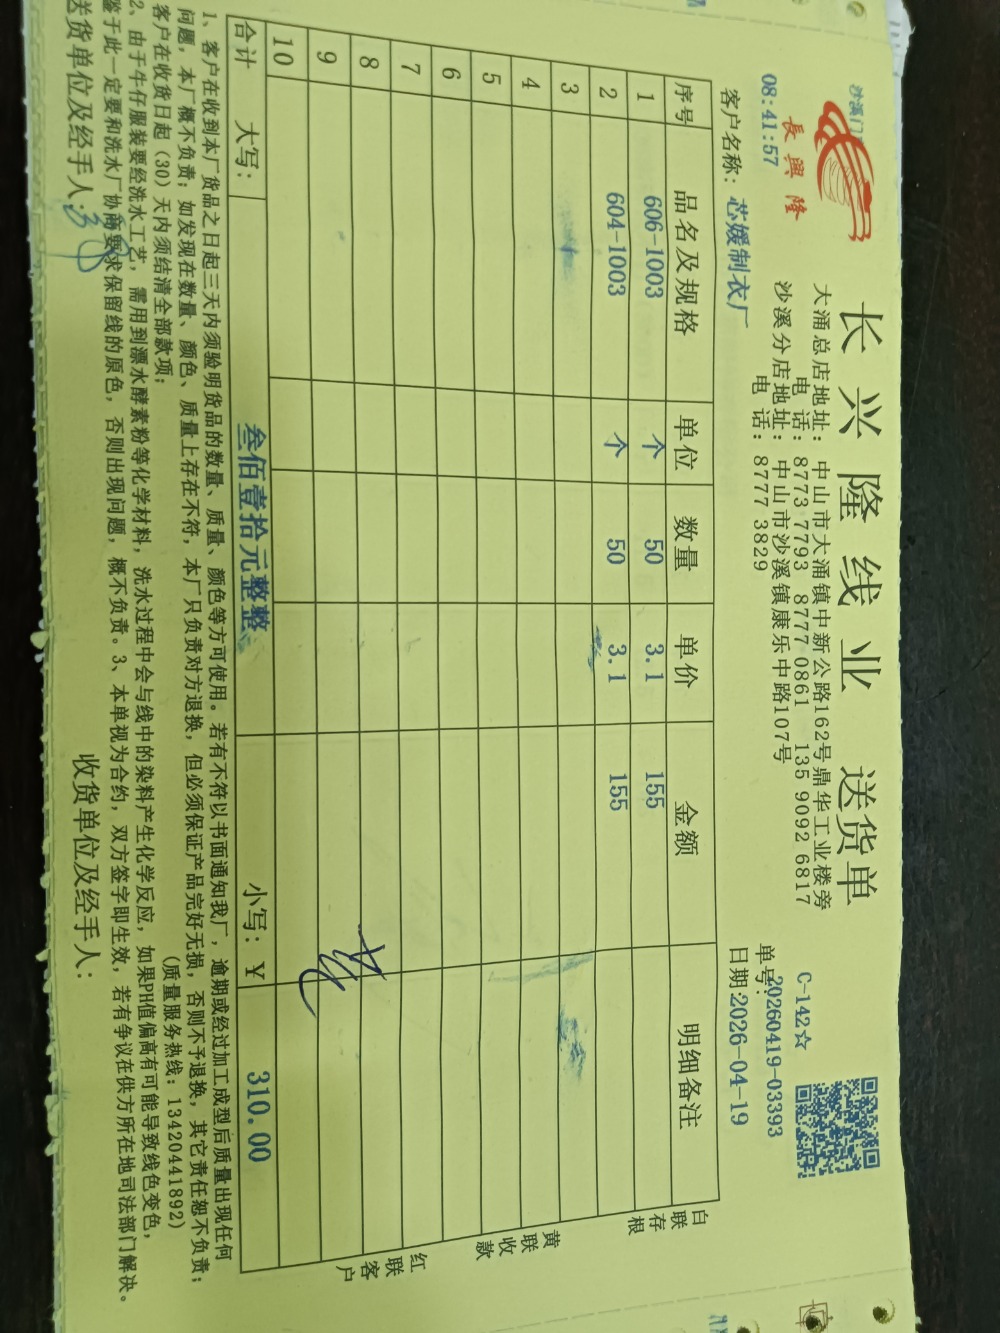 长兴隆线业 送货单
長興隆
沙溪门
08:41:57
大涌总店地址：中山市大涌镇中新公路162号鼎华工业楼旁
电 话：8773 7793 8777 0861 135 9092 6817
沙溪分店地址：中山市沙溪镇康乐中路107号
电 话：8777 3829
C-142☆
单号:20260419-03393
客户名称：芯媛制衣厂 日期:2026-04-19
序号 品名及规格 单位 数量 单价 金额 明细备注
1 606-1003 个 50 3.1 155
2 604-1003 个 50 3.1 155
3
4
5
6
7
8
9
10
合计 大写：叁佰壹拾元整整 小写：￥ 310.00
白联存根
黄联收款
红联客户
1、客户在收到本厂货品之日起三天内须验明货品的数量、质量、颜色等方可使用。若有不符以书面通知我厂，逾期或经过加工成型后质量出现任何
问题，本厂概不负责；如发现在数量、颜色、质量上存在不符，本厂只负责对方退换，但必须保证产品完好无损，否则不予退换，其它责任恕不负责；
客户在收货日起（30）天内须结清全部款项； (质量服务热线：13420441892)
2、由于牛仔服装要经洗水工艺，需用到漂水酵素粉等化学材料，洗水过程中会与线中的染料产生化学反应，如果PH值偏高有可能导致线色变色，
鉴于此一定要和洗水厂协商要求保留线的原色，否则出现问题，概不负责。3、本单视为合约，双方签字即生效，若有争议在供方所在地司法部门解决。
送货单位及经手人: 收货单位及经手人：